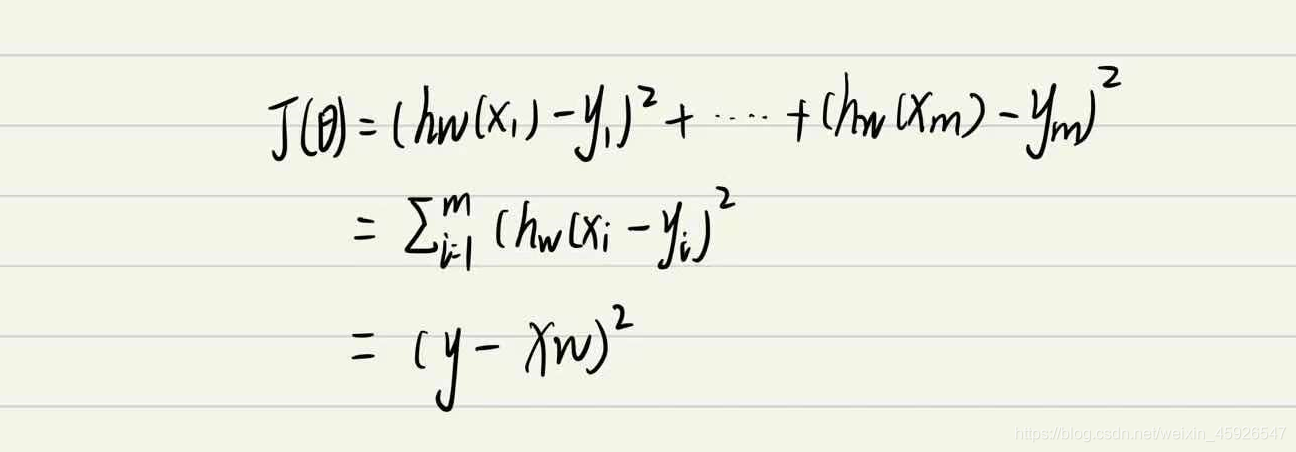 J(θ) = (hw(x₁) - y₁)² + ····· + (hw(xₘ) - yₘ)²
= Σᵢ₌₁ᵐ (hw(xᵢ - yᵢ)²
= (y - Xw)²
https://blog.csdn.net/weixin_45926547